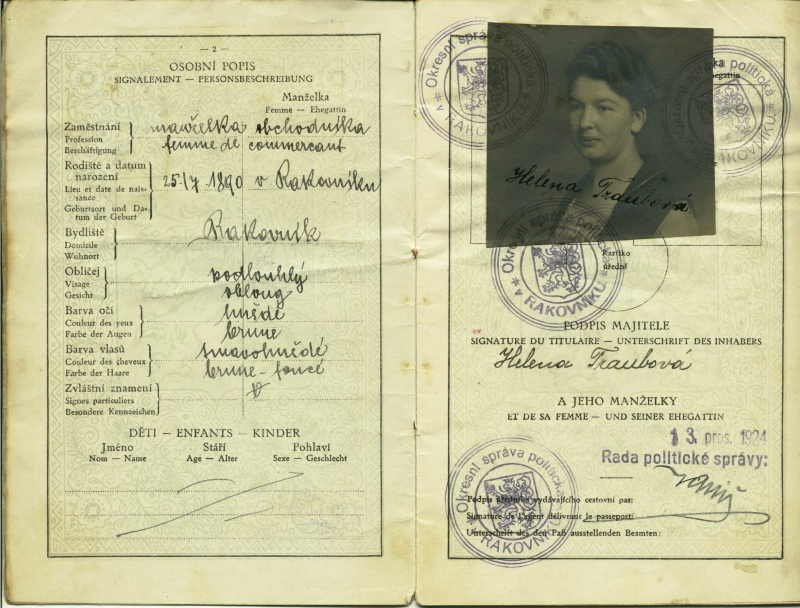 — 2 —
OSOBNÍ POPIS
SIGNALEMENT — PERSONSBESCHREIBUNG
Manželka
Femme — Ehegattin
Zaměstnání
Profession
Beschäftigung
manželka obchodníka
femme de commercant
Rodiště a datum
narození
Lieu et date de nais-
sance
Geburtsort und Da-
tum der Geburt
1890 v Rakovníku
Bydliště
Domicile
Wohnort
Rakovník
Obličej
Visage
Gesicht
podlouhlý
oblong
Barva očí
Couleur des yeux
Farbe der Augen
hnědé
brune
Barva vlasů
Couleur des cheveux
Farbe der Haare
tmavohnědé
brune-foncé
Zvláštní znamení
Signes particuliers
Besondere Kennzeichen
DĚTI — ENFANTS — KINDER
Jméno Stáří Pohlaví
Nom — Name Age — Alter Sexe — Geschlecht
Okresní správa politická
v RAKOVNÍKU
Helena Traubová
Okresní správa politická
v RAKOVNÍKU
úřední
PODPIS MAJITELE
SIGNATURE DU TITULAIRE — UNTERSCHRIFT DES INHABERS
Helena Traubová
A JEHO MANŽELKY
ET DE SA FEMME — UND SEINER EHEGATTIN
13. pros. 1924
Rada politické správy:
Okresní správa politická
v RAKOVNÍKU
Podpis úředníka vydávajícího cestovní pas:
Signature de l'agent délivrant le passeport:
Unterschrift des den Paß ausstellenden Beamten: